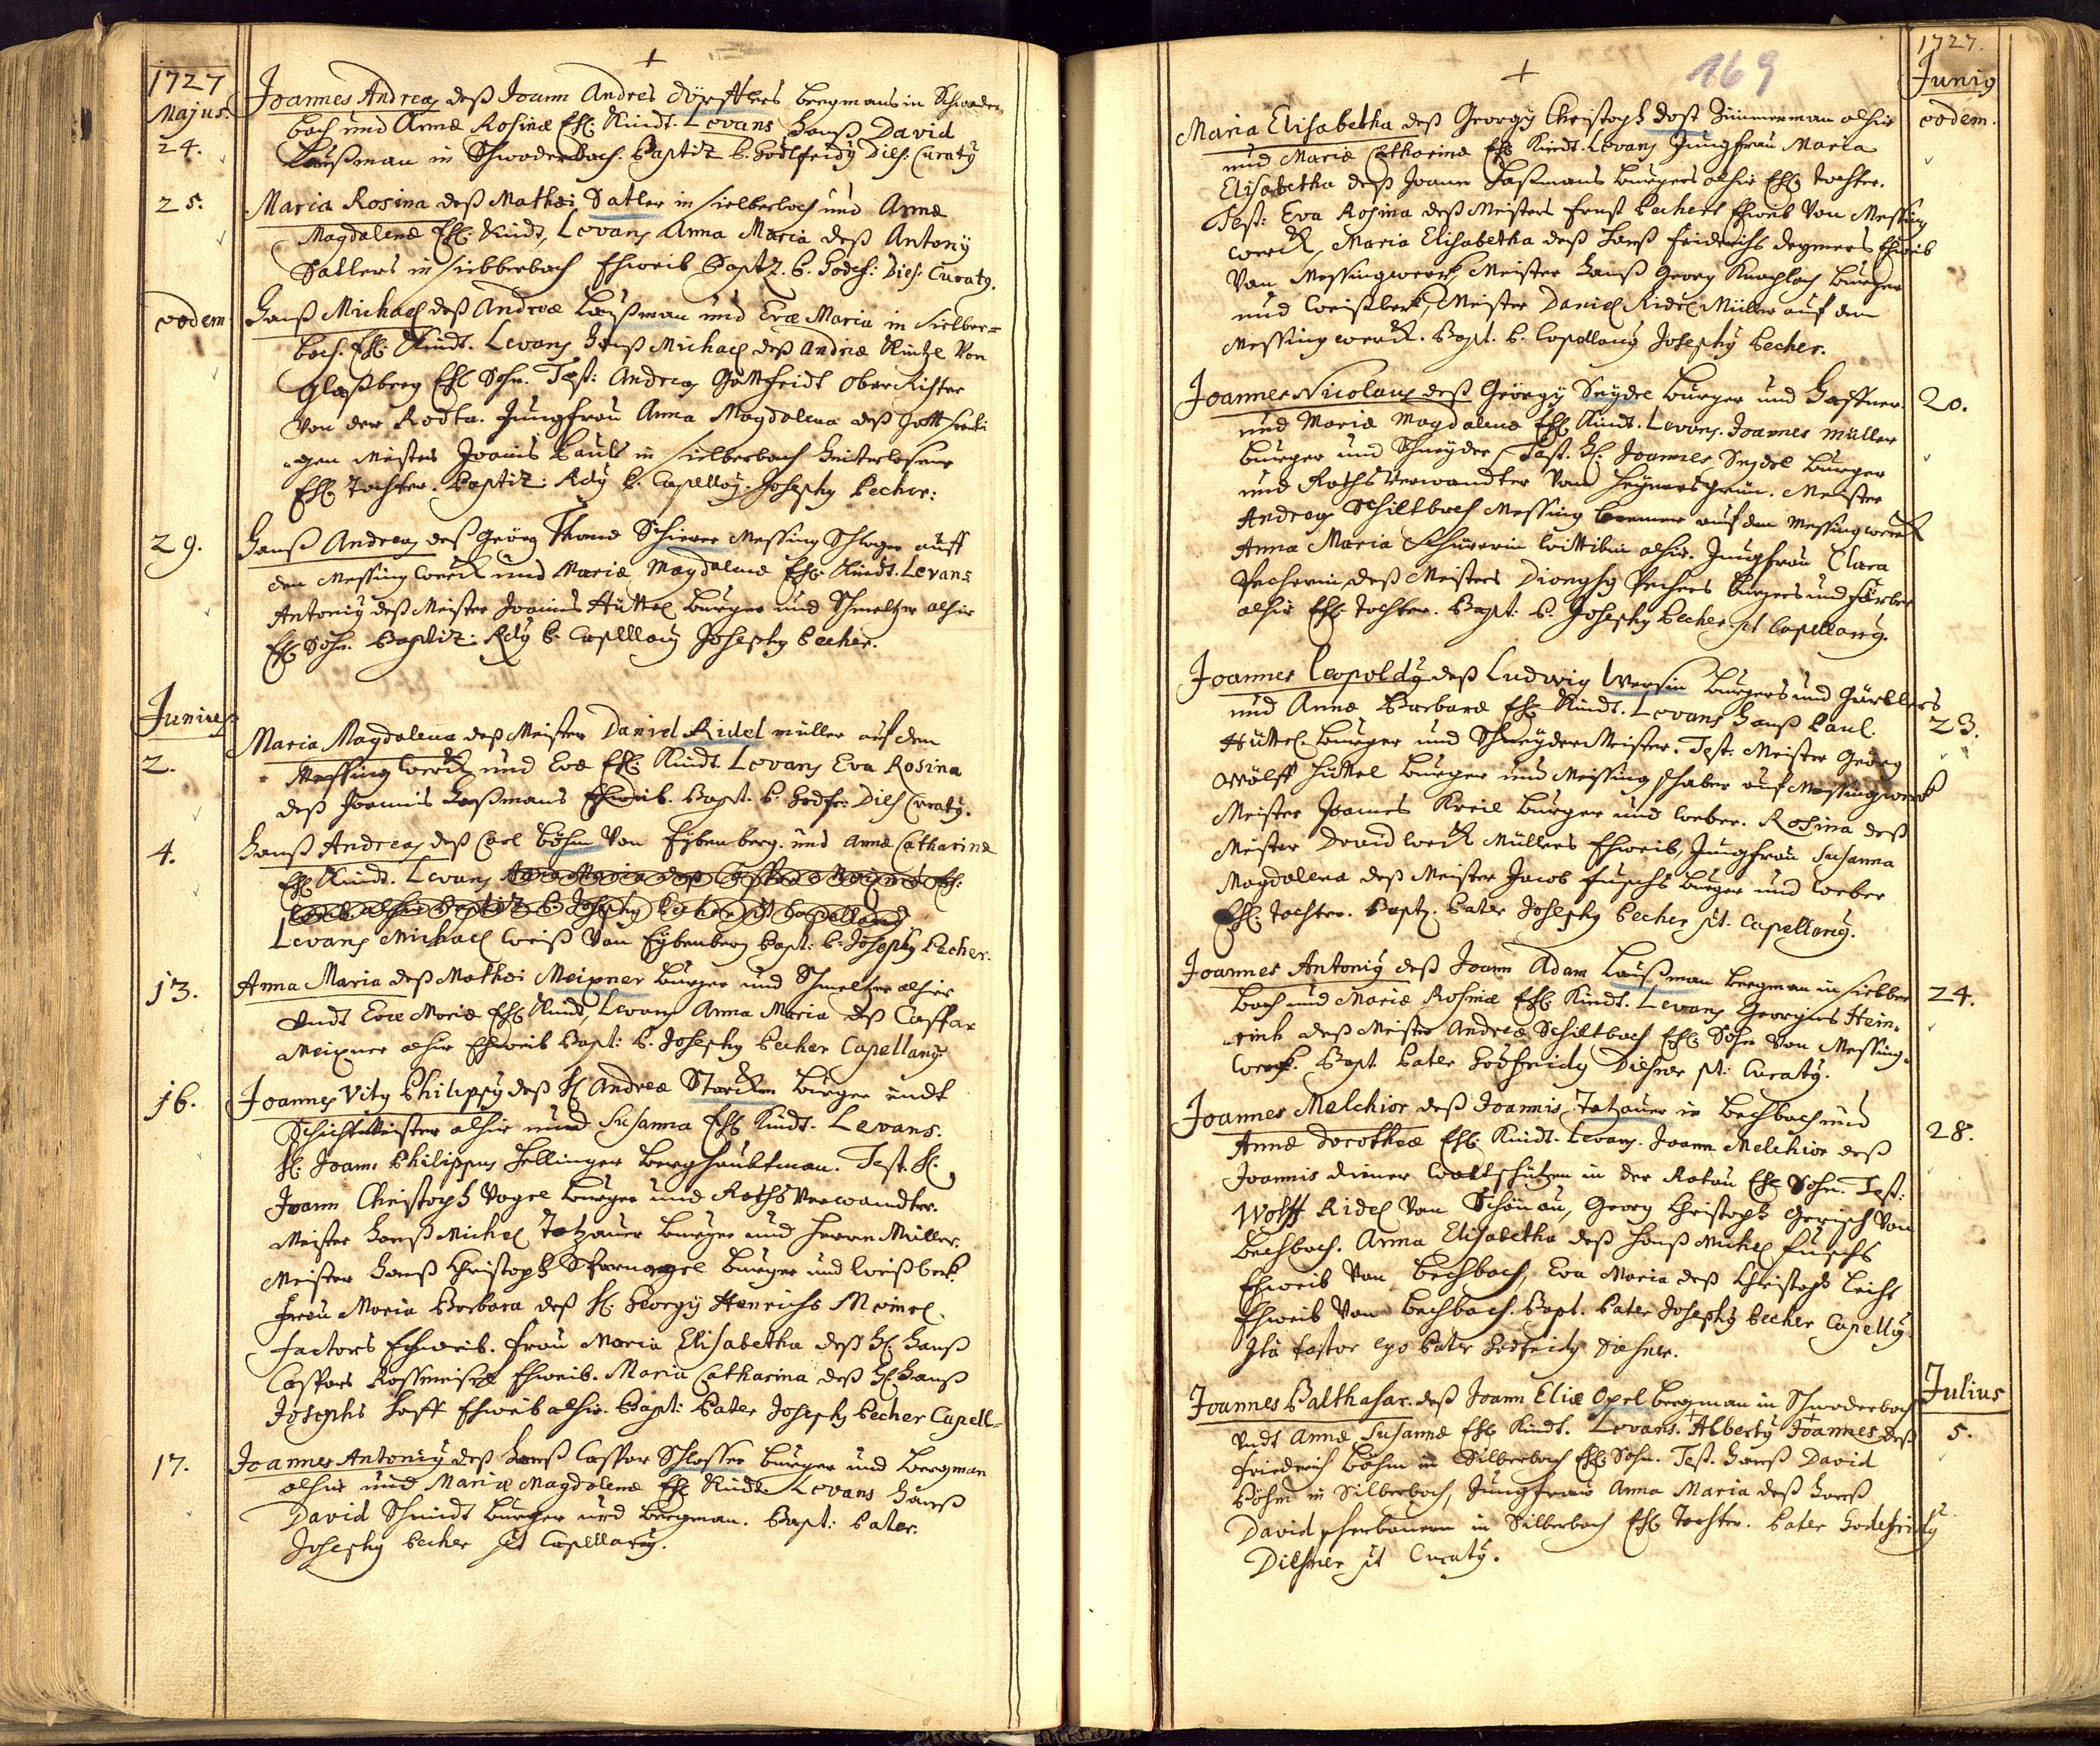 1727
Majus.
24.
Joannes Andreas deß Joann Andres dörfflers bergmans in Schwader-
bach und Annæ Rosinæ Ehl: Kindt. Levans Hanß David
Laußman in Schwaderbach. Baptiz P. Godtfridy Dies: Curaty
25.
Maria Rosina deß Mathæi Satler in sielberbach und Annæ
Magdalenæ Ehl: Kindt, Levans Anna Maria deß Antony
Satlers in sielberbach Ehweib Baptz. P. Godef: Dies: Curaty.
eodem
Hanß Michael deß Andreæ Laußman und Evæ Maria in sielber=
bach. Ehl: Kindt. Levans Hanß Michael deß Andreæ Küntzl Von
Glaßberg Ehl Sohn. Test: Andreas Gottfridt ober Rister
Von der Rodta. Jungfrau Anna Magdalena deß Gott seeli
gen Meisters Joannis Pauls in sielberbach hinterlasene
Ehl: Tochter. Baptiz: Rdy P. Capellany. Josephy Becher:
29.
Hanß Andreas deß Georg Thomæ Schierer Messing Schlager auff
den Messing werck und Mariæ Magdalenæ Ehl: Kindt. Levans
Antoniy deß Meister Joannes Hüttel burger und Schmeltzer alhir
Ehl: Sohn. Baptiz: Rdy P. Capellany Josephy Becher.
Junius
2.
Maria Magdalena deß Meister Daniel Ridel müller auf dem
Messing werck und Evæ Ehl: Kindt. Levans Eva Rosina
deß Joannis Laßmans Ehweib. Bapt. P. Godfr: Dies Curaty.
4.
Hanß Andreas deß Carl böhm Von Eybenberg. und Annæ Catharinæ
Ehl: Kindt. Levans
Levans Michael Weiß Von Eybenberg Bapt: P. Josephy Becher.
13.
Anna Maria deß Mathæi Meixner burger und Schmeltzer alhier
undt Evæ Mariæ Ehl: Kindt, Levans Anna Maria deß Caspar
Meixner alhir Ehweib Bapt: P. Josephy Becher Capellany
16.
Joannes Vity Philippy deß H. Andreæ Starcken Burger undt
Schichtmeister alhir und Susanna Ehl: Kindt. Levans.
H: Joan: Philippus Hellinger Berghaubtman. Test. H:
Joann Christoph Vogel burger und Raths Verwandter.
Meister Hanß Michel Totzauer burger und Herrn Müller.
Meister Hanß Christoph Starnagel burger und Weißbeck.
Frau Maria Barbara deß H: Georgy Henrichs Meinel
factors Ehweib. Frau Maria Elisabetha deß H: Hanß
Caspars Rossmeisl Ehweib. Maria Catharina deß H: Hanß
Josephs Hoff Ehweib alhir. Bapt: Pater Josephy Becher Capell=
17.
Joannes Antoniy deß Hanß Caspar Schlosser burger und Bergman
alhir und Mariæ Magdalenæ Ehl Kindt. Levans Hanß
David Schmidt burger und Bergman. Bapt: Pater.
Josephy Becher pt Capellany.
169
1727.
Junig
eodem.
Maria Elisabetha deß Georgy Christoph dost Zimmerman alhir
und Mariæ Catharinæ Ehl Kindt. Levans Jungfrau Maria
Elisabetha deß Joann Laßmans burgers alhir Ehl: Tochter.
Test: Eva Rosina deß Meisters Ernst Bechers Ehweib Von Messing
werck, Maria Elisabetha deß Hanß Fridrichs degmers Ehweib
Von Messingwerck, Meister Hanß Georg Knochloch burger
und weißbeck, Meister Daniel Ridel Müller auf dem
Messing werck. Bapt. P. Capellany Josephy Becher.
20.
Joannes Nicolaus deß Georgy Seydel burger und Haffner
und Mariæ Magdalenæ Ehl Kindt. Levans. Joannes müller
burger und Schneyder, Test. H: Joannes Seydel burger
und Raths Verwandter Von Heynrichsgrün. Meister
Andreas Schiltbach Messing brenner auf dem Messing werck
Anna Maria Schürerin Wittibin alhir. Jungfrau Clara
Becherin, deß Meisters Dionysy Bechers burgers und Färber
alhir Ehl: Tochter. Bapt: P. Josephy Becher pt Capellany.
23.
Joannes Leopoldy deß Ludwig Wersin burgers und Gürtlers
und Annæ Barbaræ Ehl: Kindt. Levans Hanß Paul
Hüttel burger und Schneyder Meister. Test: Meister Georg
Wolff Hüttel burger und Messing Schaber auf Messingwerck
Meister Joannes Kreil burger und Weber. Rosina deß
Meister David Weiß Müllers Ehweib, Jungfrau Susanna
Magdalena deß Meister Jacob Fuschs burger und Weber
Ehl: Tochter. Baptz. Pater Josephy Becher pt. Capellany.
24.
Joannes Antoniy deß Joann Adam Laußman bergman in sielber
bach und Mariæ Rosinæ Ehl: Kindt. Levans Georgius Hein-
rich deß Meister Andreæ Schiltbach Ehl: Sohn Von Messing-
werck. Bapt Pater Godfridy Diesner pt: Curaty.
28.
Joannes Melchior deß Joannis Totzauer in Bechbach und
Annæ Dorotheæ Ehl: Kindt. Levans. Joann Melchior deß
Joannis diener Waltschützen in der Rotau Ehl Sohn. Test:
Wolff Ridel Von Schönau, Georg Christoph Gerisch Von
Bechbach. Anna Elisabetha deß Hanß Michel Fuschs
Ehweib Von Bechbach, Eva Maria deß Christoph Leicht
Ehweib Von Bechbach. Bapt. Pater Josephy Becher Capelly
Ita testor ego Pater Godfridy Diesner.
Julius
5.
Joannes Balthasar. deß Joann Eliæ Opel bergman in Schwaderbach
undt Annæ Susannæ Ehl Kindt. Levans. Alberty Joannes deß
Friedrich Böhm in Silberbach Ehl: Sohn. Test. Hanß David
Böhm in Silberbach, Jungfrau Anna Maria deß Hanß
David scherbaum in Silberbach Ehl: Tochter. Pater Godefridy
Diesner pt Curaty.